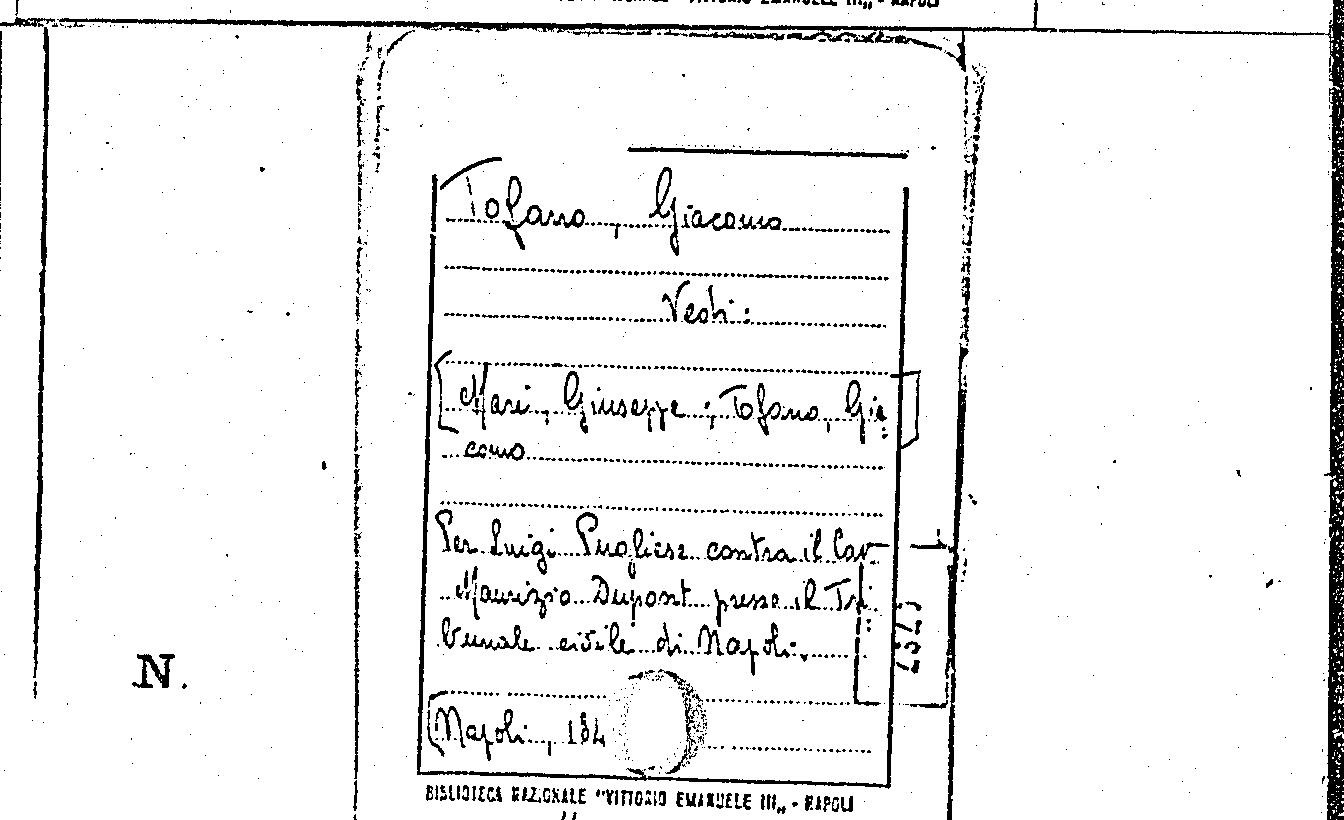 Tofano, Giacomo
Vedi:
Mari, Giuseppe ; Tofano, Gia:
como
Per Luigi Pugliese contra il Cav
Maurizio Dupont presso il Tri:
bunale civile di Napoli.
Napoli, 184
N.
BIBLIOTECA NAZIONALE "VITTORIO EMANUELE III„ - NAPOLI